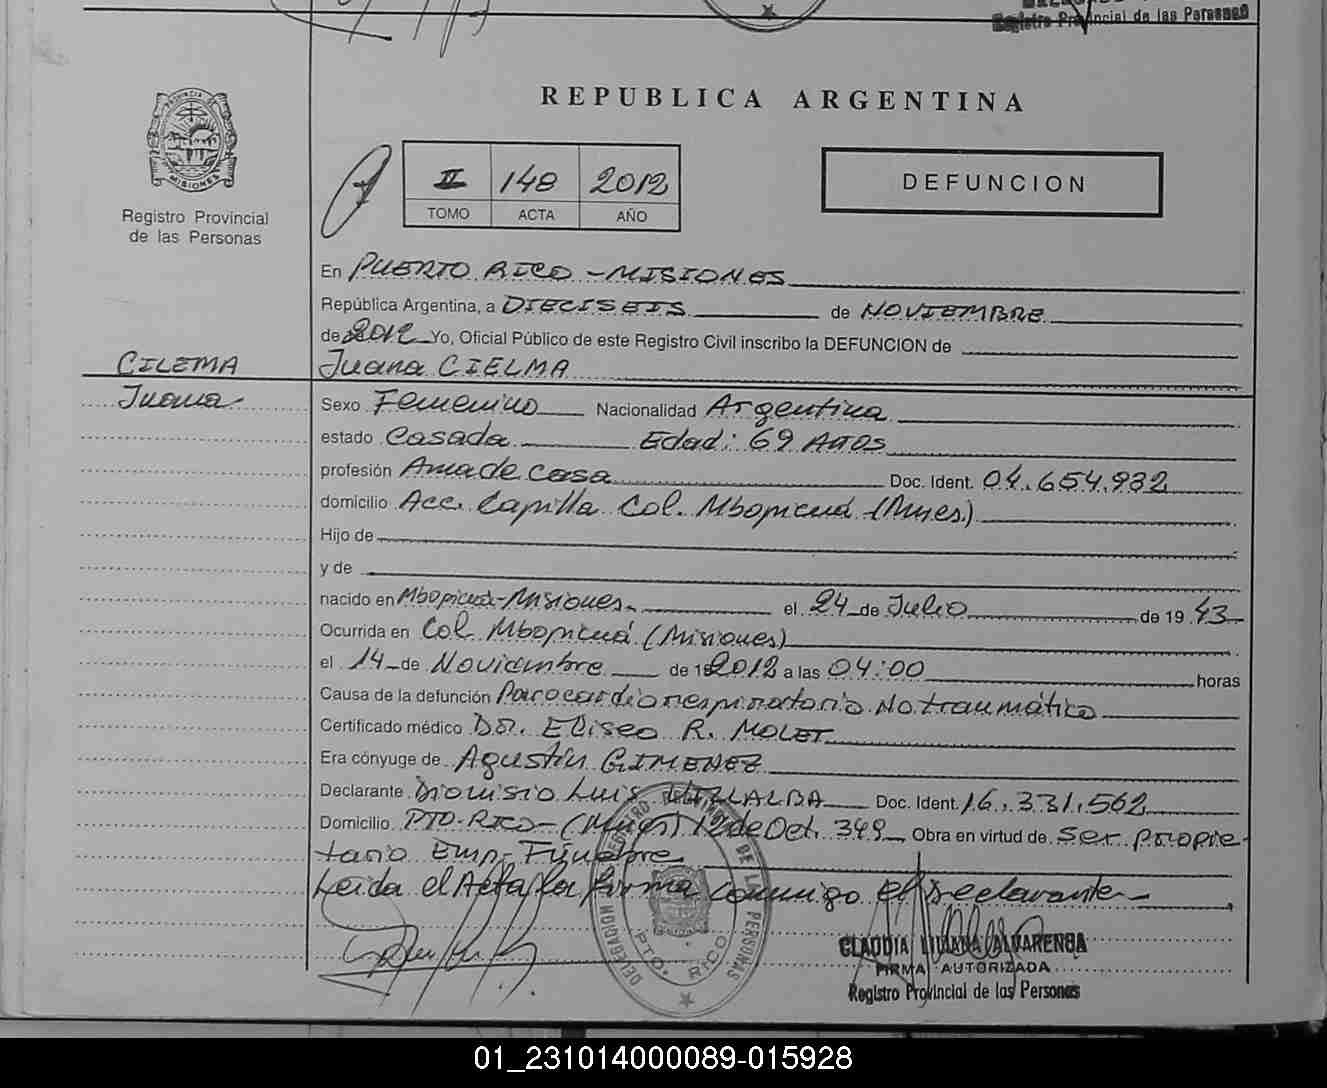 Registro Provincial de las Personas
PROVINCIA DE
MISIONES
Registro Provincial
de las Personas
REPUBLICA ARGENTINA
II 148 2012
TOMO ACTA AÑO
DEFUNCION
En PUERTO RICO - MISIONES
República Argentina, a DIECISEIS de NOVIEMBRE
de 2012 Yo, Oficial Público de este Registro Civil inscribo la DEFUNCION de
CILEMA
Juana
Juana CIELMA
Sexo Femenino Nacionalidad Argentina
estado Casada Edad: 69 Años
profesión Ama de casa Doc. Ident. 04.654.932
domicilio Acc. Capilla Col. Mbopicuá (Mnes)
Hijo de
y de
nacido en Mbopicuá-Misiones. el 24 de Julio de 19 43
Ocurrida en Col. Mbopicuá (Misiones)
el 14 de Noviembre de 2012 a las 04:00 horas
Causa de la defunción Parocardiorespiratorio No traumático
Certificado médico Dr. Eliseo R. MOLET
Era cónyuge de Agustín GIMENEZ
Declarante Dionisio Luis VILLALBA Doc. Ident. 16.331.562
Domicilio PTO-RICO-(Mnes) 12 de Oct. 349 Obra en virtud de ser propie-
tario Emp. Fúnebre
Leida el Acta la firma conmigo el declarante
DELEGACION REGISTRO PROVINCIAL DE LAS PERSONAS
PTO. RICO
CLAUDIA LILIANA ALVARENGA
FIRMA AUTORIZADA
Registro Provincial de las Personas
01_231014000089-015928